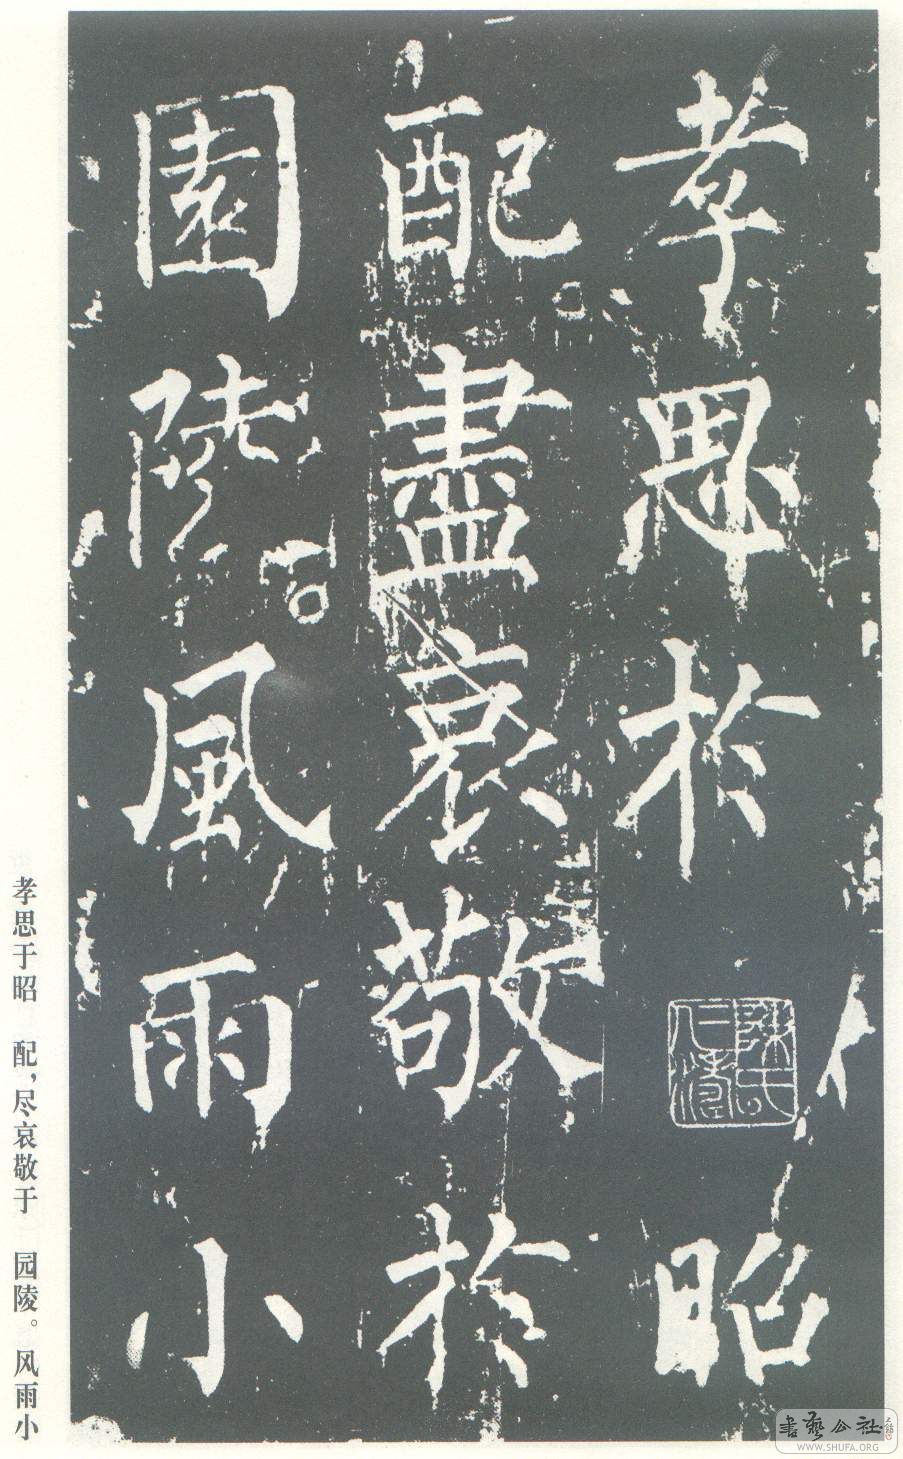 孝思於昭
配盡哀敬於
園陵風雨小
孝思于昭　配，尽哀敬于　园陵。风雨小
書藝公社
WWW.SHUFA.ORG